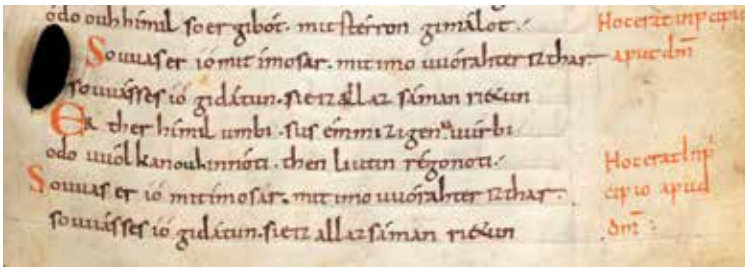 odo ouh himil so er gibót · mit stérron gimálot ·
Souuas er io mit imo sár · mit imo uuórahter iz thar
souuásses ió gidátun · sie iz állaz sáman rietun
Er ther hímil umbi · sus émmizigen uuúrbi
odo uuólkan ouh innóti · then liutin régonoti ·
Souuas er ió mit imo sár · mit imo uuórahter iz thar
souuásses ió gidátun · sie iz allaz sáman rietun
Hoc erat in p̄cipio
apud dm̄
Hoc erat In p̄
cipio apud
dm̄ :